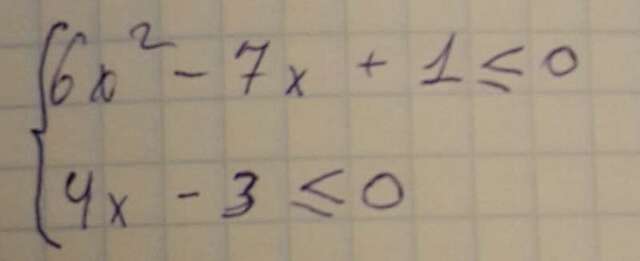 {6x² - 7x + 1 ≤ 0
4x - 3 ≤ 0